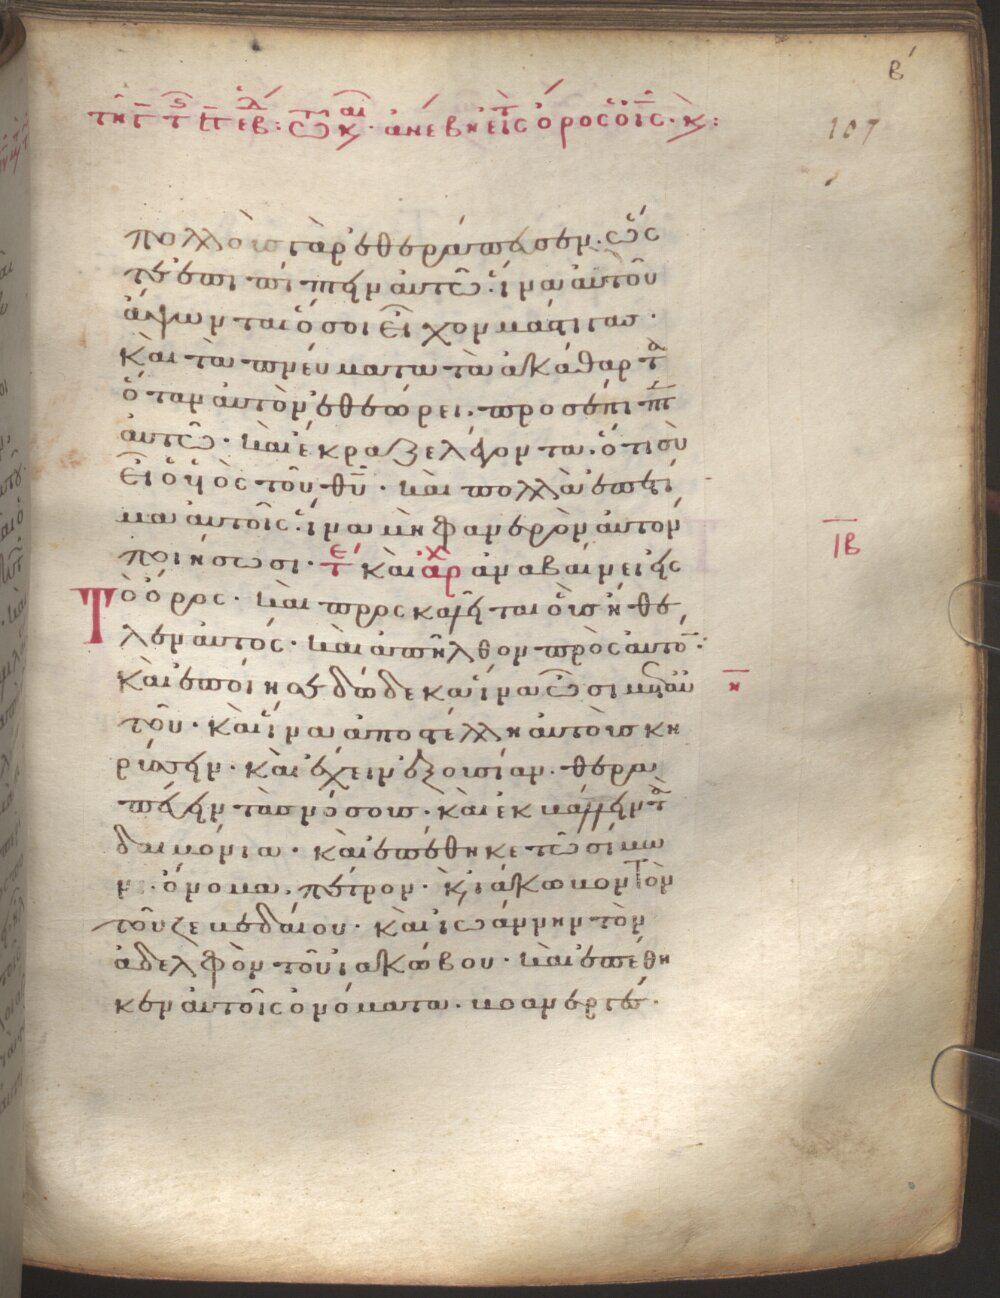 β´
107
τῆ γ̄ τ̄ς ιβ̄ ἑβ^δ: τῶ κ^αι. ἀνέβη εἰς τ̄ ὄρος ὁ ἰς̄. κ̀:
πολλοὺς γὰρ ἐθεράπευσεν. ὥς
τε ἐπι πίπτην αὐτῶ. ἵνα αὐτοῦ
ἅψωνται ὅσοι εἶχον μάστιγας.
καὶ τὰ πνεύματα τὰ ἀκάθαρτα
ὅταν αὐτὸν ἐθεώρει. προσέπιπτ
αὐτῶ. καὶ ἔκραζε λέγοντα. ὅτι σὺ
εἶ ὁ υἱὸς τοῦ θῡ. καὶ πολλὰ ἐπετί
μα αὐτοῖς. ἵνα μὴ φανερὸν αὐτὸν
ΙΒ
ποιήσωσι. τ^ε καὶ ἀρ^χ ἀναβαίνει εἰς
τὸ ὄρος. καὶ προσκαλῆται οὓς ἤθε
λεν αὐτός. καὶ ἀπῆλθον πρὸς αὐτό:
καὶ ἐποίησε δώδεκα ἵνα ὦσι μετ αὐ
η
τοῦ. καὶ ἵνα ἀποστέλλη αὐτοὺς κη
ρύσειν. καὶ ἔχειν ἐξουσίαν. θερα
πεύειν τὰς νόσους. καὶ ἐκβάλλειν τὰ
δαιμόνια. καὶ ἐπέθηκε τῶ σίμω
ν. ὄνομα. πέτρον. κ̀ ϊάκωβον τὸν
τοῦ ζεβεδαίου. καὶ ϊωάννην τὸν
ἀδελφὸν τοῦ ϊακώβου. καὶ ἐπέθη
κεν αὐτοῖς ὀνόματα. βοανεργές.